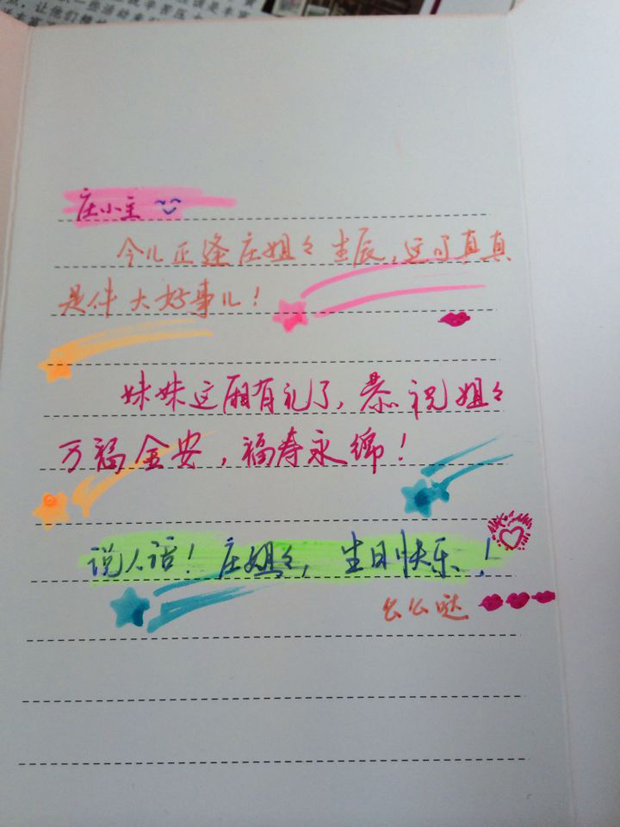 庄小主
今儿正逢庄姐々生辰，这可真真
是件大好事儿！
妹妹这厢有礼了，恭祝姐々
万福金安，福寿永绵！
说人话！庄姐々，生日快乐！
么么哒